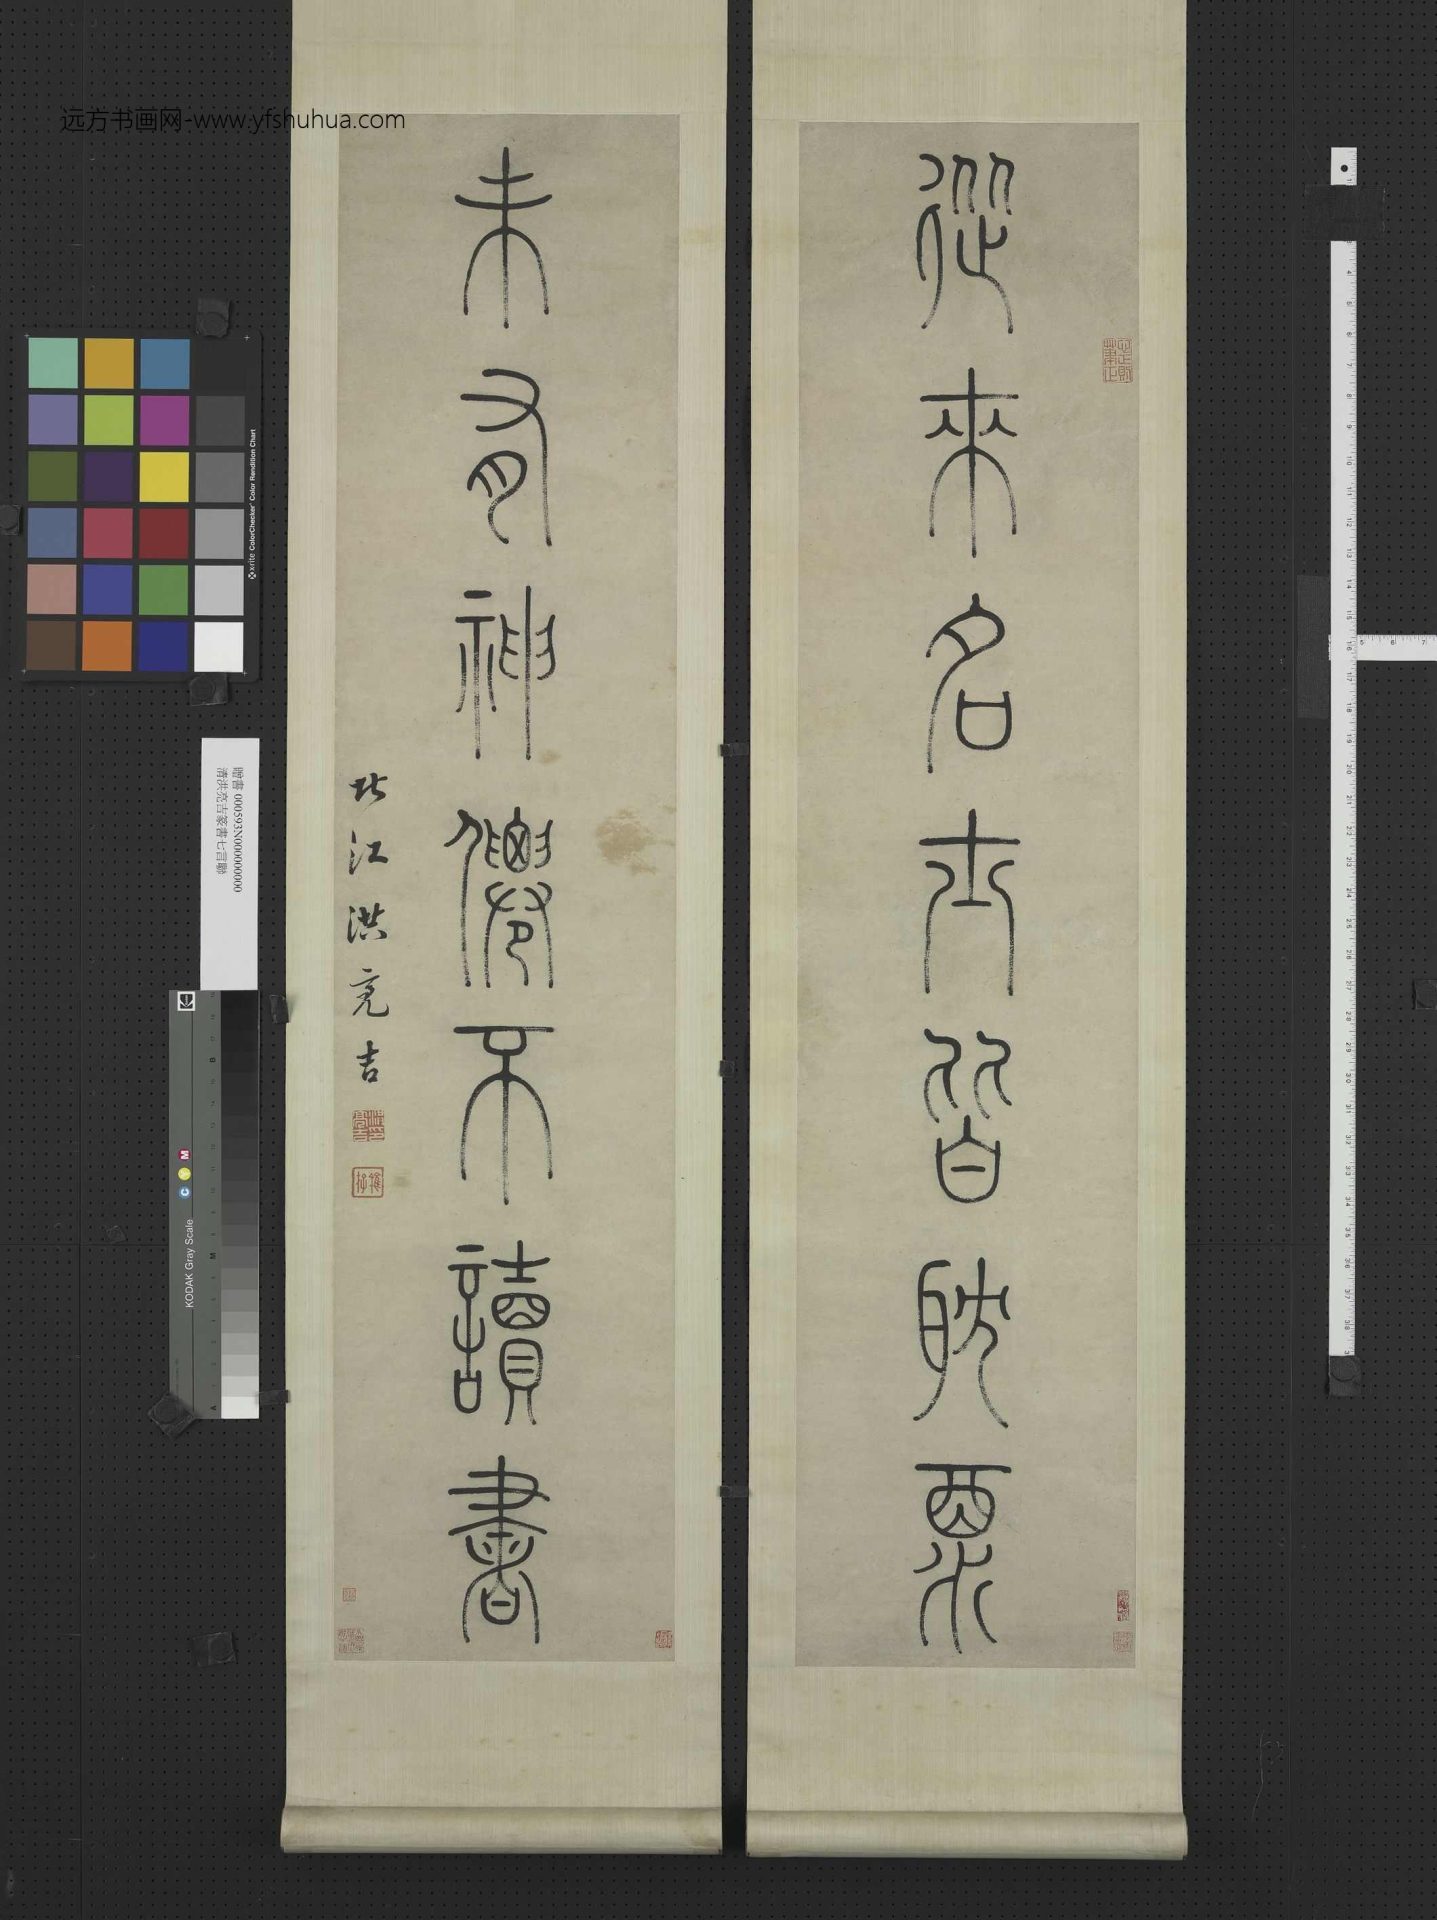 远方书画网-www.yfshuhua.com
從來名士皆耽酒
心正則筆正
未有神僊不讀書
北江洪亮吉
贈書 000593N000000000
清洪亮吉篆書七言聯
x-rite ColorChecker Color Rendition Chart
KODAK Gray Scale
C Y M